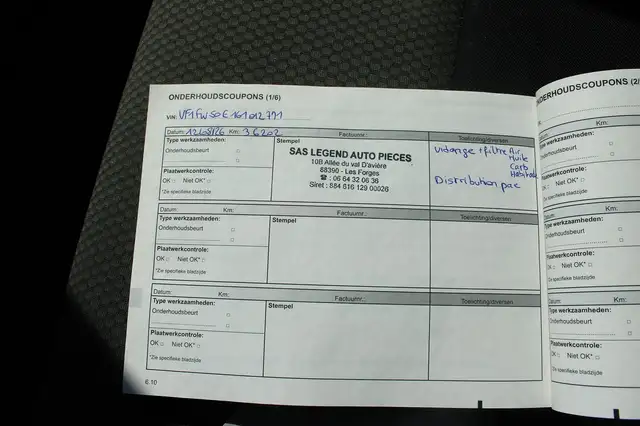 ONDERHOUDSCOUPONS (1/6)
VIN:
Datum: Km: 36202 Factuurnr.: Toelichting/diversen
Type werkzaamheden:
Onderhoudsbeurt □
□
Plaatwerkcontrole:
OK □ Niet OK* □
*Zie specifieke bladzijde
Stempel
SAS LEGEND AUTO PIECES
10B Allée du val D'avière
88390 - Les Forges
☎ : 06 64 32 06 36
Siret : 884 616 129 00026
Vidange + filtre Air
Huile
Carb
Habitacle
Distribution
Datum: Km: Factuurnr.: Toelichting/diversen
Type werkzaamheden:
Onderhoudsbeurt □
□
Plaatwerkcontrole:
OK □ Niet OK* □
*Zie specifieke bladzijde
Stempel
Datum: Km: Factuurnr.: Toelichting/diversen
Type werkzaamheden:
Onderhoudsbeurt □
□
Plaatwerkcontrole:
OK □ Niet OK* □
*Zie specifieke bladzijde
Stempel
6.10
ONDERHOUDSCOUPONS (2/
Datum:
Type werkzaamheden:
Onderhoudsbeurt □
□
Plaatwerkcontrole:
OK □ Niet OK* □
*Zie specifieke bladzijde
Datum:
Type werkzaamheden:
Onderhoudsbeurt □
□
Plaatwerkcontrole:
OK □ Niet OK* □
*Zie specifieke bladzijde
Datum:
Type werkzaamheden:
Onderhoudsbeurt □
□
Plaatwerkcontrole:
OK □ Niet OK* □
*Zie specifieke bladzijde